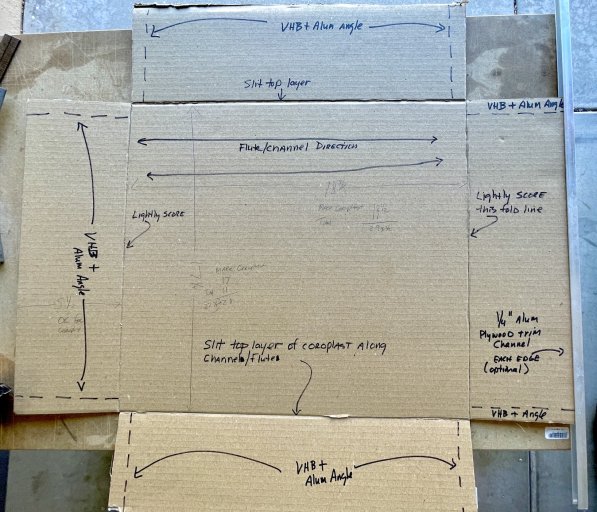 VHB + Alum Angle
Slit top layer
VHB + Alum Angle
Flute/Channel Direction
Lightly Score
Lightly Score
this fold line
VHB +
Alum Angle
1/4" Alum
Plywood trim
Channel
Each Edge
(optional)
Slit top layer of coroplast along
Channels/flutes
VHB + Angle
VHB +
Alum Angle